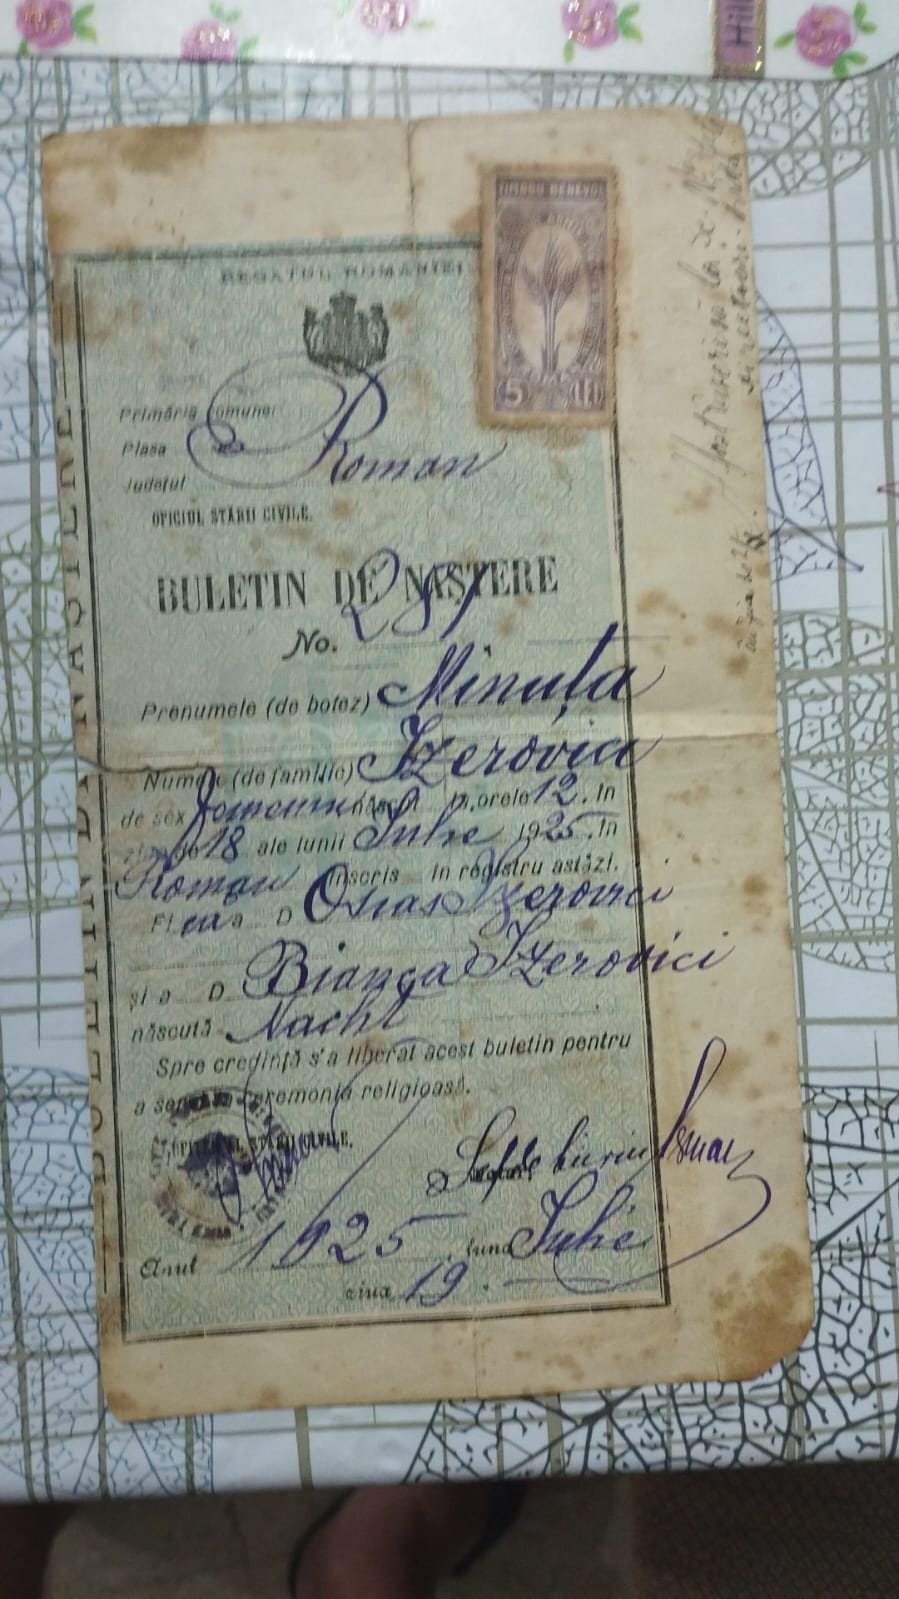 REGATUL ROMANIEI
5 LEI
Primăria Comunei
Plasa
Roman
Județul
OFICIUL STĂRII CIVILE.
BULETIN DE NAȘTERE
No. 281
Prenumele (de botez) Minuța
Numele (de familie) Izerovici
de sex femenin născut orele 12. în
18 ale lunii Iulie 1925. în
Roman înscris în registru astăzi.
Fi ca a D Osias Izerovici
și a D Bianca Izerovici
născută Nacht
Spre credință s'a liberat acest buletin pentru
a ceremonia religioasă.
OFIȚERUL STĂRII CIVILE.
Anul 1925 luna Iulie
ziua 19.